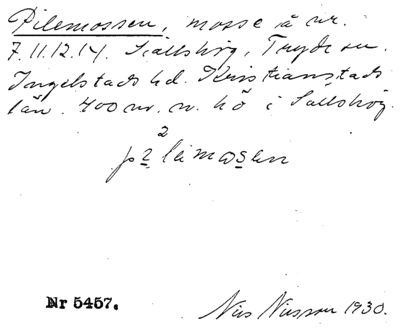 Pilemossen, mosse å nr.
7. 11. 12. 14. Sallshög, Tryde sn.
Ingelstads hd. Kristianstads
län. 400 m. n. hö i Sallshög.
2
Nr 5457.
Nils Nilsson 1930.